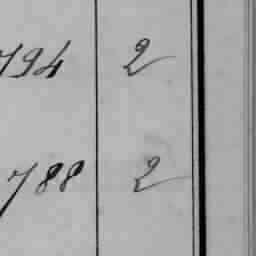 794 2
788 2